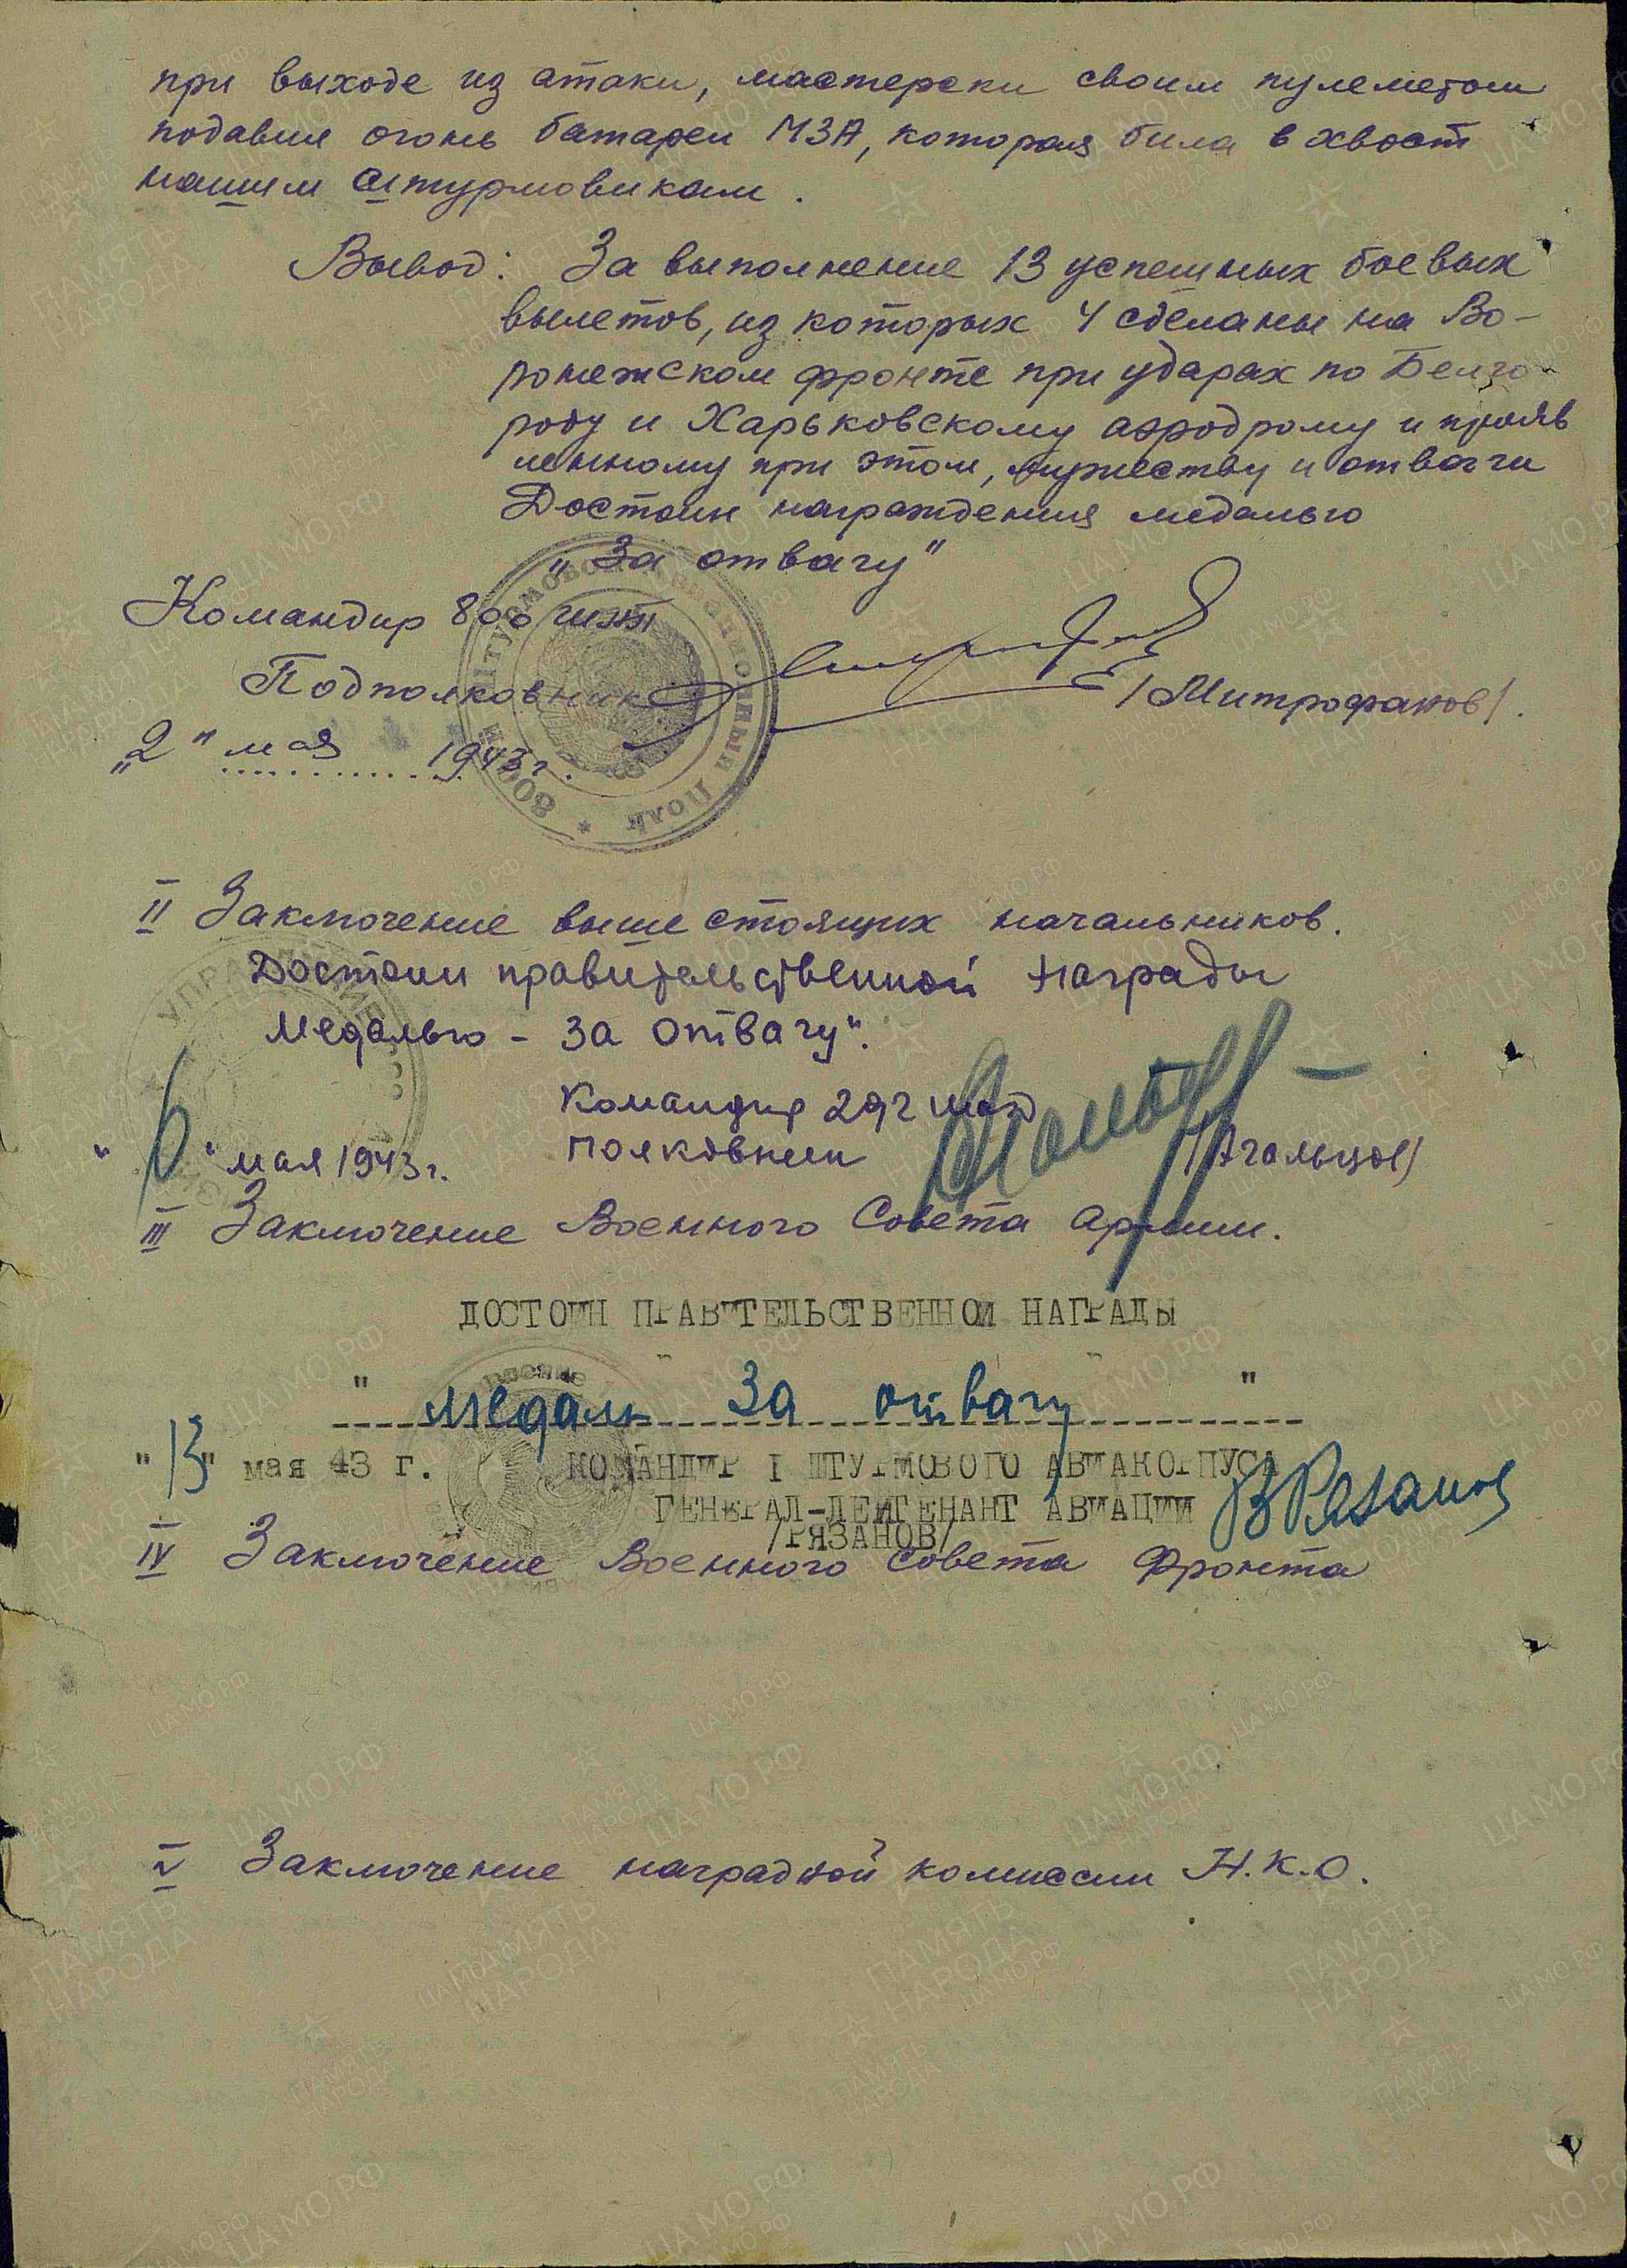 при выходе из атаки, мастерски своим пулеметом
подавил огонь батареи МЗА, которая била в хвост
нашим штурмовикам.
Вывод: За выполнение 13 успешных боевых
вылетов, из которых 4 сделаны на Во-
ронежском фронте при ударах по Белго
роду и Харьковскому аэродрому и прояв
ленному при этом, мужеству и отваги
Достоин награждения медалью
„За отвагу"
Командир 800 шап
Подполковник /Митрофанов/.
„2" мая 1943 г.
800й Штурмовой Авиационный Полк
II Заключение вышестоящих начальников.
Достоин правительственной награды
Медалью - За отвагу".
Командир 292 шад
Полковник /Агальцов/
"6" мая 1943 г.
III Заключение Военного Совета Армии.
ДОСТОИН ПРАВИТЕЛЬСТВЕННОЙ НАГРАДЫ
" медаль За отвагу "
"13" мая 43 г. КОМАНДИР I ШТУРМОВОГО АВИАКОРПУСА
ГЕНЕРАЛ-ЛЕЙТЕНАНТ АВИАЦИИ ВРязанов
/РЯЗАНОВ/
IV Заключение Военного Совета Фронта
V Заключение наградной комиссии Н.К.О.
ПАМЯТЬ НАРОДА
ЦА МО РФ